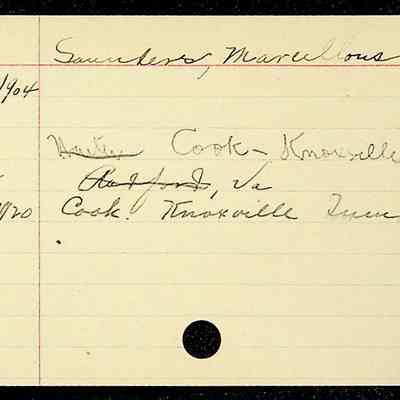 Saunders, Marcellous
1904
Waiter Cook - Knoxville
Radford, Va
1920 Cook. Knoxville Tenn